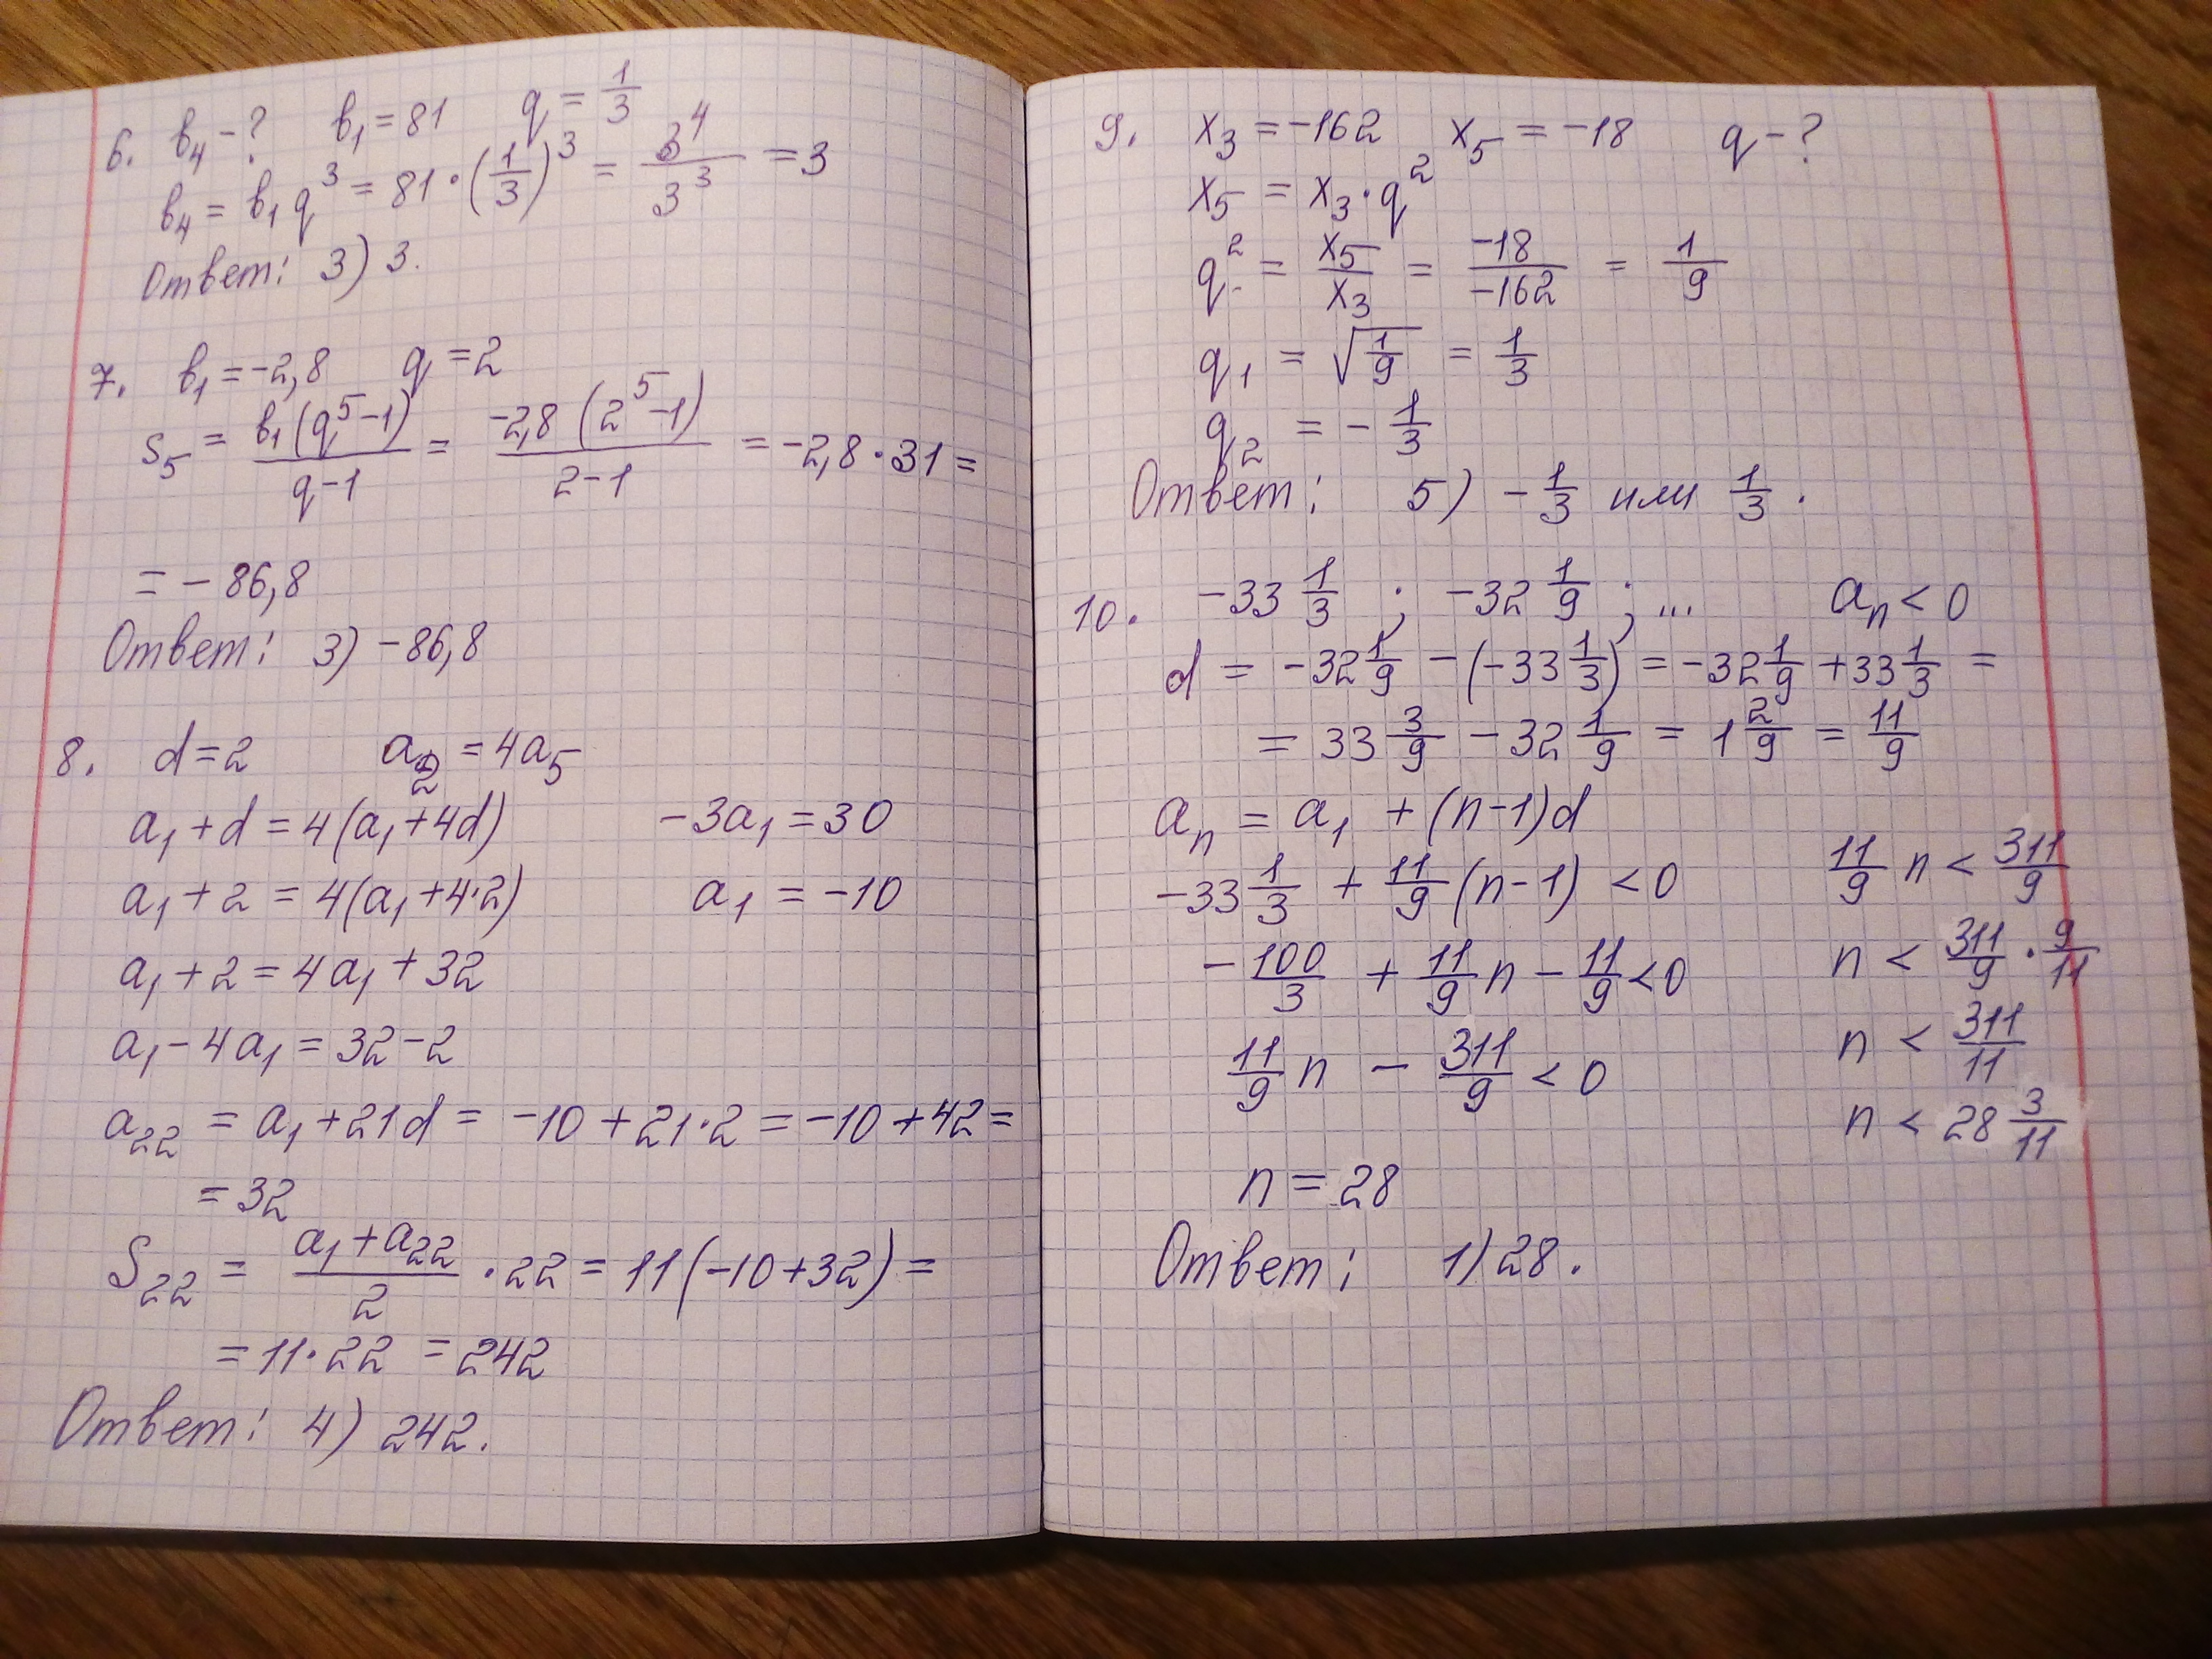 6. b₄ - ? b₁ = 81 q = 1/3
b₄ = b₁q³ = 81 · (1/3)³ = 3⁴/3³ = 3
Ответ: 3) 3.
7. b₁ = -2,8 q = 2
S₅ = b₁(q⁵-1)/(q-1) = -2,8(2⁵-1)/(2-1) = -2,8 · 31 =
= -86,8
Ответ: 3) -86,8
8. d = 2 a₂ = 4a₅
a₁ + d = 4(a₁ + 4d) -3a₁ = 30
a₁ + 2 = 4(a₁ + 4·2) a₁ = -10
a₁ + 2 = 4a₁ + 32
a₁ - 4a₁ = 32 - 2
a₂₂ = a₁ + 21d = -10 + 21·2 = -10 + 42 =
= 32
S₂₂ = (a₁ + a₂₂)/2 · 22 = 11(-10 + 32) =
= 11 · 22 = 242
Ответ: 4) 242.
9. x₃ = -162 x₅ = -18 q - ?
x₅ = x₃ · q²
q² = x₅/x₃ = -18/-162 = 1/9
q₁ = √(1/9) = 1/3
q₂ = -1/3
Ответ: 5) -1/3 или 1/3.
10. -33 1/3 ; -32 1/9 ; ... aₙ < 0
d = -32 1/9 - (-33 1/3) = -32 1/9 + 33 1/3 =
= 33 3/9 - 32 1/9 = 1 2/9 = 11/9
aₙ = a₁ + (n-1)d
-33 1/3 + 11/9 (n-1) < 0
-100/3 + 11/9 n - 11/9 < 0
11/9 n - 311/9 < 0
11/9 n < 311/9
n < 311/9 · 9/11
n < 311/11
n < 28 3/11
n = 28
Ответ: 1) 28.